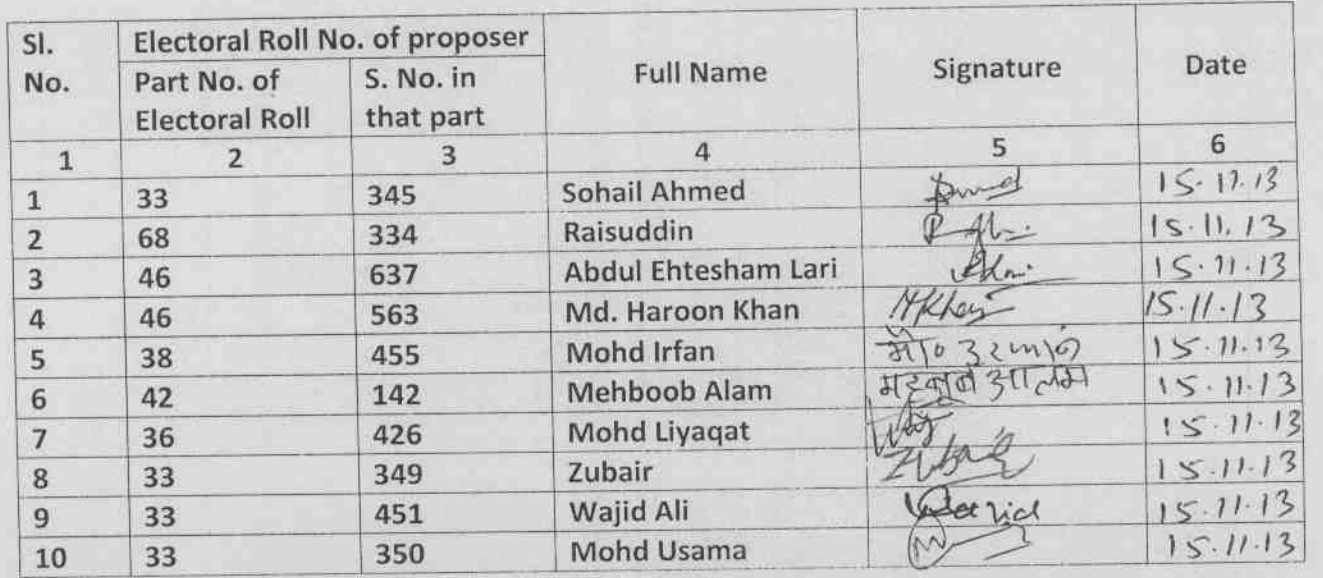 Sl. No. Electoral Roll No. of proposer Full Name Signature Date
Part No. of Electoral Roll S. No. in that part
1 2 3 4 5 6
1 33 345 Sohail Ahmed 15.11.13
2 68 334 Raisuddin 15.11.13
3 46 637 Abdul Ehtesham Lari 15.11.13
4 46 563 Md. Haroon Khan MKhan 15.11.13
5 38 455 Mohd Irfan 15.11.13
6 42 142 Mehboob Alam 15.11.13
7 36 426 Mohd Liyaqat 15.11.13
8 33 349 Zubair Zubair 15.11.13
9 33 451 Wajid Ali 15.11.13
10 33 350 Mohd Usama 15.11.13